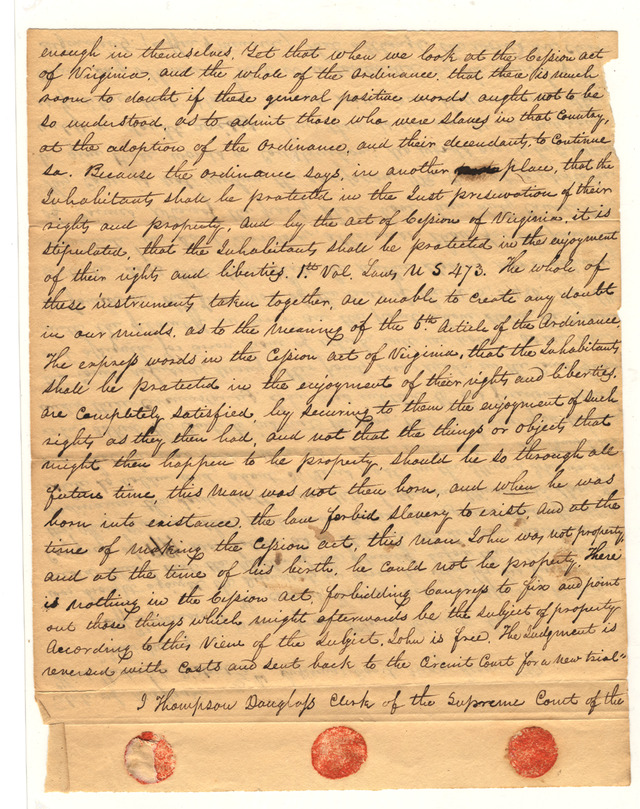 enough in themselves. Yet that when we look at the Cession act
of Virginia, and the whole of the Ordinance, that there is much
room to doubt if these general positive words aught not to be
so understood, as to admit those who were slaves in that Country,
at the adoption of the Ordinance, and their descendants, to Continue
so. Because the ordinance says, in another place, that the
Inhabitants shall be protected in the Just preservation of their
rights and property, and by the act of Cession of Virginia, it is
stipulated, that the Inhabitants shall be protected in the enjoyment
of their rights and liberties. 1st Vol. Laws U S 473. The whole of
these instruments taken together, are unable to create any doubt
in our minds, as to the meaning of the 6th Article of the Ordinance.
The express words in the Cession act of Virginia, that the Inhabitants
shall be protected in the enjoyment of their rights and liberties.
are Completely satisfied, by securing to them the enjoyment of such
rights as they then had, and not that the things or objects that
might then happen to be property, should be so through all
future time, this man was not then born, and when he was
born into existance, the law forbid slavery to exist, and at the
time of making the Cession act, this man John was not property,
and at the time of his birth, he could not be property. There
is nothing in the Cession Act, forbidding Congress to fix and point
out those things which might afterwards be the subject of property
According to this View of the subject, John is free, The Judgment is
reversed with Costs and sent back to the Circuit Court for a new trial"
I Thompson Douglass Clerk of the Supreme Court of the